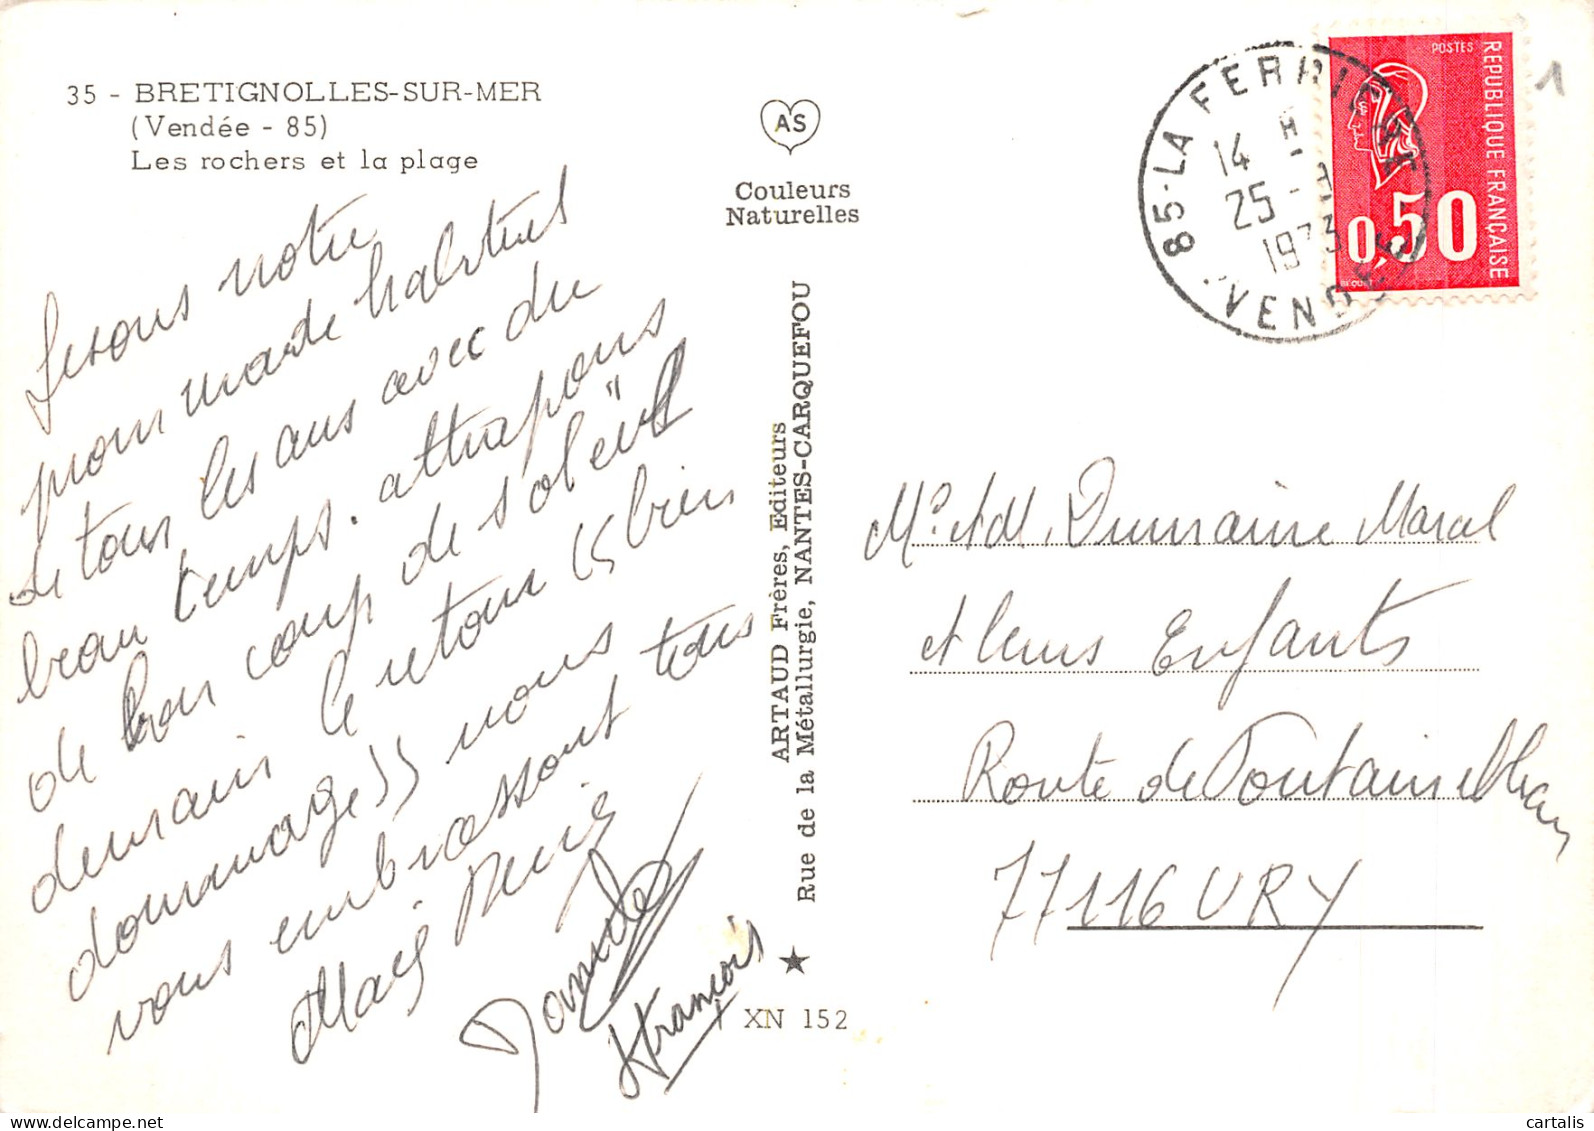 35 - BRETIGNOLLES-SUR-MER
(Vendée - 85)
Les rochers et la plage
faisons notre
promenade habituel
de tous les ans avec du
beau temps. attrapons
de bon coup de soleil
demain le retour (bien
dommage)) nous
vous embrassont tous
Daniel
François
AS
Couleurs
Naturelles
ARTAUD Frères, Editeurs
Rue de la Métallurgie, NANTES-CARQUEFOU
XN 152
85 - LA FERRIERE
14 H
25 -
1973
VENDEE
POSTES
REPUBLIQUE FRANÇAISE
0,50
1
Mr. Md. Dumaine Marcel
et leurs Enfants
Route de Fontainebleau
77116 URY
cartalis
www.delcampe.net